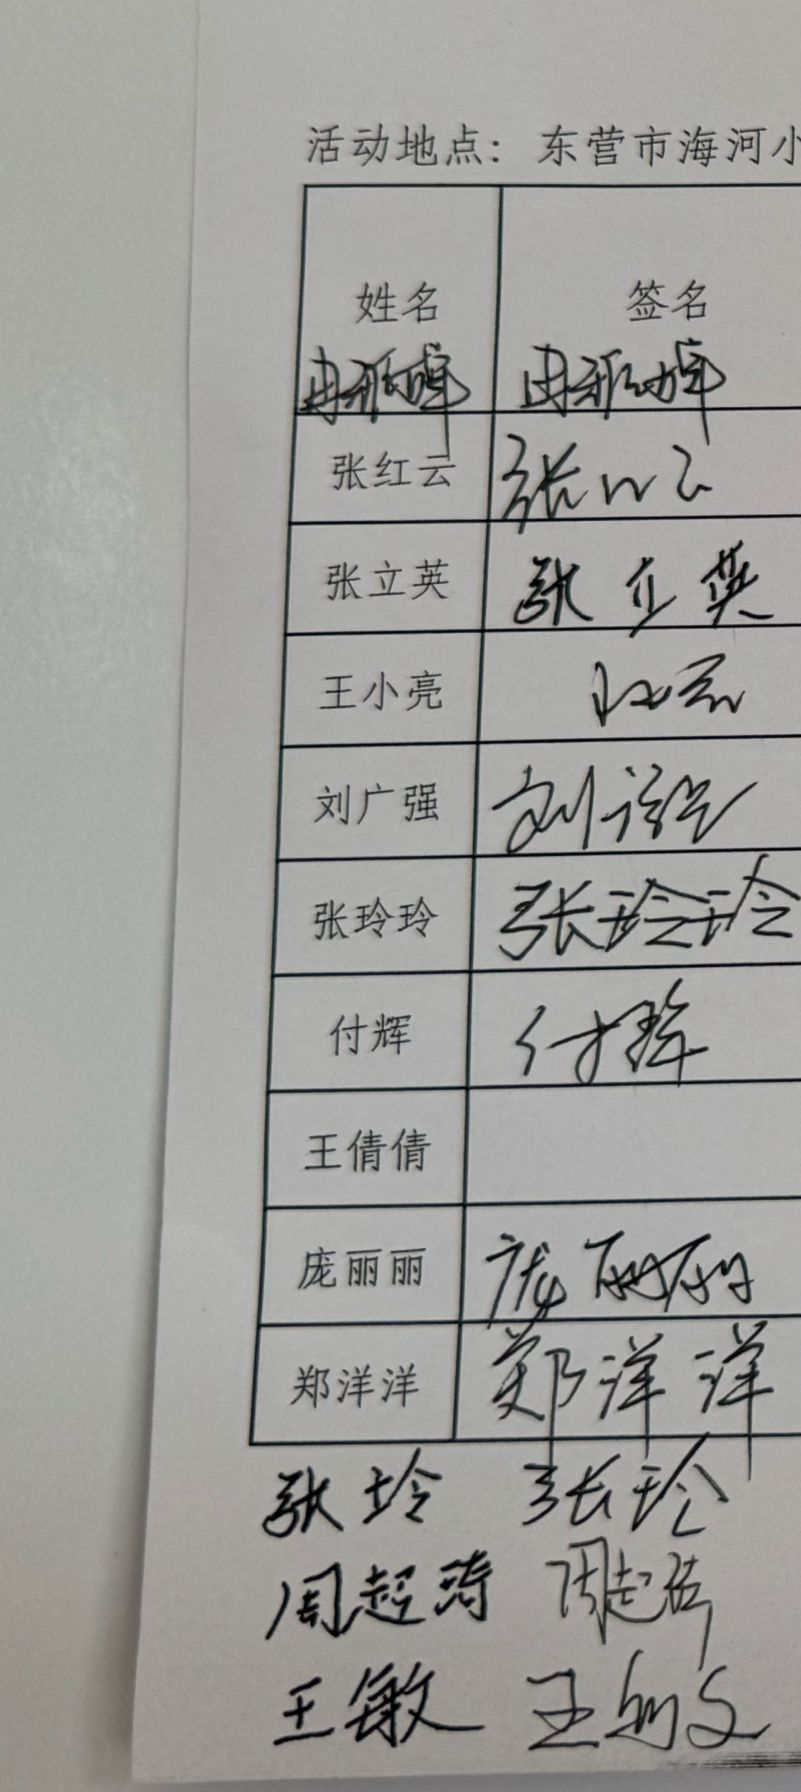 活动地点：东营市海河小
姓名 签名
张红云 张红云
张立英 张立英
王小亮
刘广强 刘广强
张玲玲 张玲玲
付辉 付辉
王倩倩
庞丽丽 庞丽丽
郑洋洋 郑洋洋
张玲 张玲
周超涛 周超涛
王敏 王敏